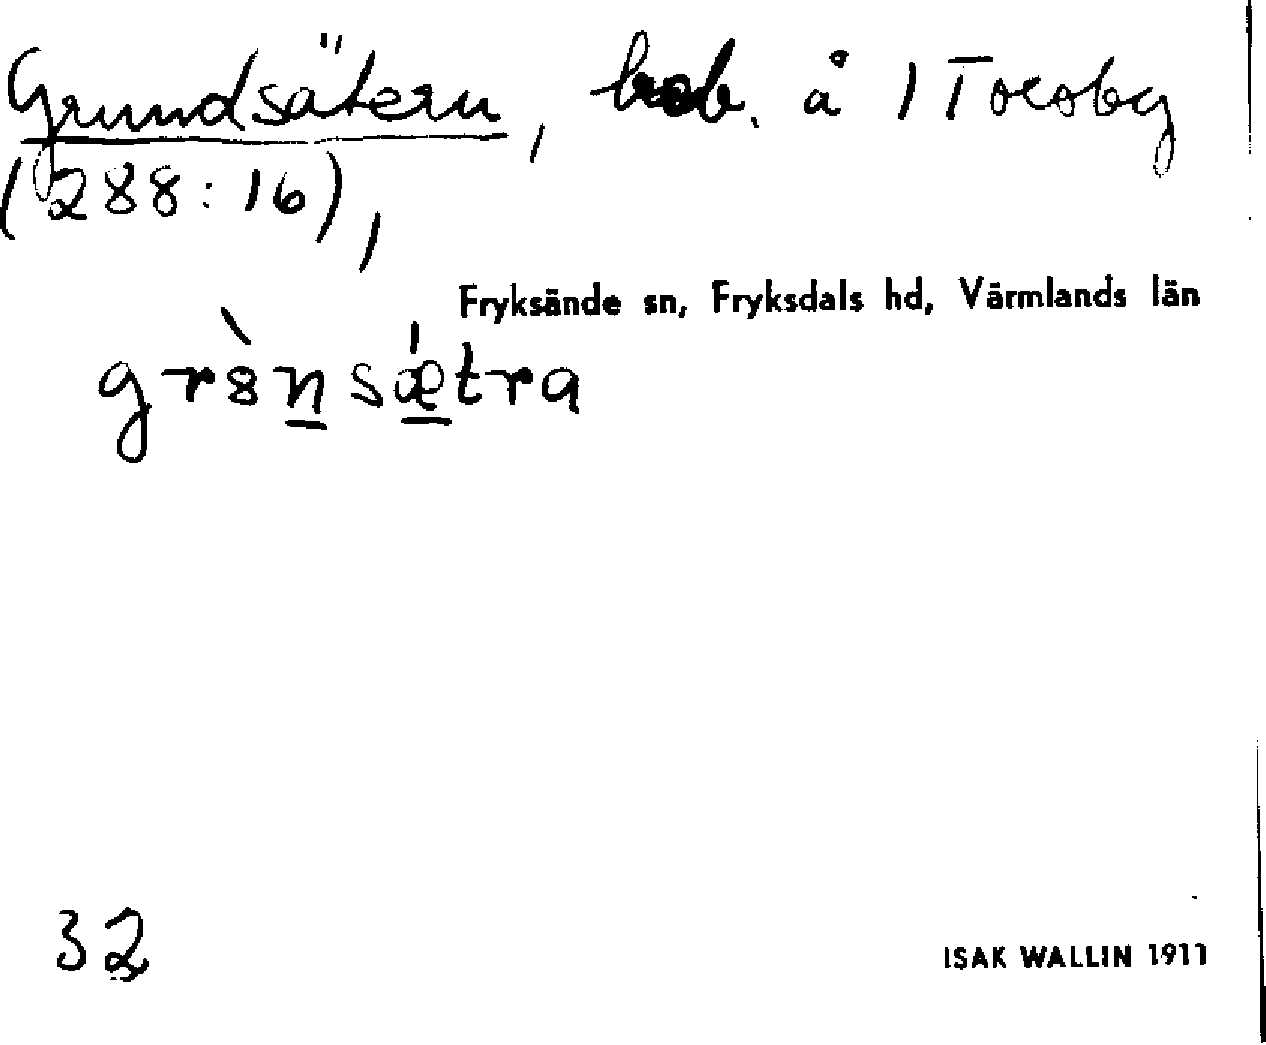 Grundsätern, å 1 Torsby
(288:16),
Fryksände sn, Fryksdals hd, Värmlands län
ISAK WALLIN 1911
32